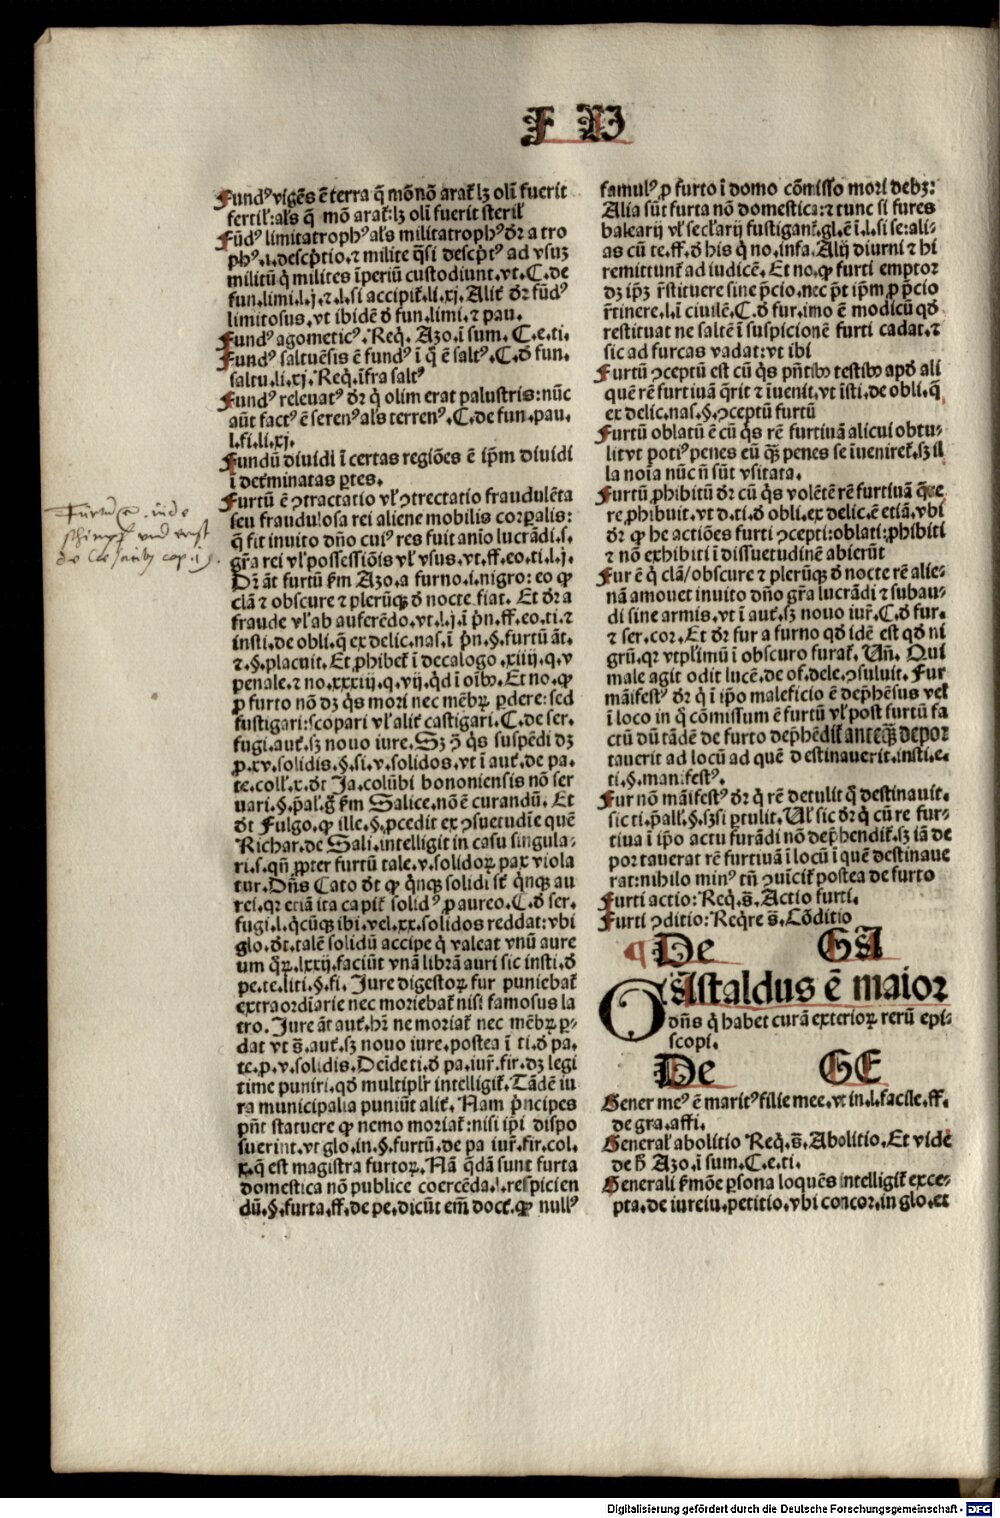 F V
Fundꝰ vigẽs ẽ terra q̃ mõ nõ arat̃ lꝫ olĩ fuerit
fertil̃: al̃s q̃ mõ arat̃: lꝫ olĩ fuerit steril̃
Fũdꝰ limitatrophꝰ al̃s militatrophꝰ d̃r a tro
phꝰ .i. descp̃tio. ⁊ milite q̃si descp̃tꝰ ad vsuꝫ
militũ q̇ milites ĩperiũ custodiunt. vt. C. de
fun. limi. l. j. ⁊. l. si accipit̃. li. xj. Alit̃ d̃r fũdꝰ
limitosus. vt ibidẽ d̃ fun. limi. ⁊ pau.
Fundꝰ agometicꝰ. Req̃. Azo. ĩ sum. C. e. ti.
Fundꝰ saltuẽsis ẽ fundꝰ ĩ q̃ ẽ saltꝰ. C. d̃ fun.
saltu. li. xj. Req̃. ĩfra saltꝰ
Fundꝰ releuatꝰ d̃r q̇ olim erat palustris: nũc
aũt factꝰ ẽ serenꝰ al̃s terrenꝰ. C. de fun. pau.
l. fi. li. xj.
Fundũ diuidi ĩ certas regiões ẽ ip̃m diuidi
ĩ det̃minatas ꝑtes.
Furtũ ẽ ꝯtractatio vl̃ ꝯtrectatio fraudulẽta
seu fraudulosa rei aliene mobilis corꝑalis:
q̃ fit inuito dño cuiꝰ res fuit anĩo lucrãdi. s.
gr̃a rei vl̃ possessiõis vl̃ vsus. vt. ff. eo. ti. l. j.
D̃r ãt furtũ f̃m Azo. a furno. i. nigro: eo ꝙ
clã ⁊ obscure ⁊ plerũqꝫ d̃ nocte fiat. Et d̃r a
fraude vl̃ ab auferẽdo. vt. l. j. ĩ p̃n. ff. eo. ti. ⁊
insti. de obli. q̃ ex delic. nas. ĩ p̃n. §. furtũ ãt.
⁊. §. placuit. Et ꝓhibet̃ ĩ decalogo. xiiij. q. v
penale. ⁊ no. xxxiij. q. vij. q̃d ĩ oĩbꝰ. Et no. ꝙ
ꝓ furto nõ dꝫ q̃s mori nec mẽbꝝ ꝑdere: sed
fustigari: scopari vl̃ alit̃ castigari. C. de ser.
fugi. aut̃. sꝫ nouo iure. Sꝫ ꝯ̃ q̃s suspẽdi dꝫ
ꝓ. xv. solidis. §. si. v. solidos. vt ĩ aut̃. de pa.
te. coll̃. x. d̃t Ja. colũbi bononiensis nõ ser
uari. §. p̃al̃. g̃ f̃m Salice. nõ ẽ curandũ. Et
d̃t Fulgo. ꝙ ille. §. ꝓcedit ex ꝯsuetudĩe quẽ
Richar. de Sali. intelligit in casu singula⸗
ri. s. qñ ꝓpter furtũ tale. v. solidoꝝ pax viola
tur. Dñs Cato d̃t ꝙ q̃nqꝫ solidi st̃ q̃nqꝫ au
rei. qꝛ etiã ita capit̃ solidꝰ ꝓ aureo. C. d̃ ser.
fugi. l. q̃cũqꝫ ibi. vel. xx. solidos reddat: vbi
glo. d̃t. talẽ solidũ accipe q̇ valeat vnũ aure
um q̃ꝝ. lxxij. faciũt vnã librã auri sic insti. d̃
pe. te. liti. §. fi. Jure digestoꝝ fur puniebat̃
extraordĩarie nec moriebat̃ nisi famosus la
tro. Jure ãt aut̃. hr̃ ne moriat̃ nec mẽbꝝ ꝑ⸗
dat vt s̃. aut̃. sꝫ nouo iure. postea ĩ ti. d̃ pa.
te. ꝑ. v. solidis. Deĩde ti. d̃ pa. iur̃. fir. dꝫ legi
time puniri. qd̃ multipl̃r intelligit̃. Tãdẽ iu
ra municipalia puniũt alit̃. Nam p̃ncipes
pñt statuere ꝙ nemo moriat̃: nisi ip̃i dispo
suerint. vt glo. in. §. furtũ. de pa iur̃. fir. col.
x. q̃ est magistra furtoꝝ. Nã q̃dã sunt furta
domestica nõ publice coercẽda. l. respicien
dũ. §. furta. ff. de pe. dicũt em̃ doct̃. ꝙ nullꝰ
famulꝰ ꝓ furto ĩ domo cõmisso mori debꝫ:
Alia sũt furta nõ domestica: ⁊ tunc si fures
balearij vl̃ seclarij fustigant̃. gl. ẽ ĩ. l. si se: ali⸗
as cũ te. ff. d̃ his q̇ no. infa. Alij diurni ⁊ hi
remittunt̃ ad iudicẽ. Et no. ꝙ furti emptor
dꝫ ip̃ꝫ r̃stituere sine p̃cio. nec p̃t ip̃m ꝓ p̃cio
r̃tinere. l. ĩ ciuilẽ. C. d̃ fur. imo ẽ modicũ qd̃
restituat ne saltẽ ĩ suspicionẽ furti cadat. ⁊
sic ad furcas vadat: vt ibi
Furtũ ꝯceptũ est cũ q̃s pñtibꝰ testibꝰ apd̃ ali
quẽ rẽ furtiuã q̃rit ⁊ ĩuenit. vt ĩsti. de obli. q̃
ex delic. nas. §. ꝯceptũ furtũ
Furtũ oblatũ ẽ cũ q̃s rẽ furtiuã alicui obtu⸗
lit vt potiꝰ penes eũ q̃ꝫ penes se ĩueniret̃. sꝫ il
la noĩa nũc ñ sũt vsitata.
Furtũ ꝓhibitũ d̃r cũ q̃s volẽtẽ rẽ furtiuã q̃re
re ꝓhibuit. vt d. ti. d̃ obli. ex delic. ẽ etiã. vbi
d̃r ꝙ he actiões furti ꝯcepti: oblati: ꝓhibiti
⁊ nõ exhibiti ĩ dissuetudinẽ abierũt
Fur ẽ q̇ clã/obscure ⁊ plerũqꝫ d̃ nocte rẽ alie⸗
nã amouet inuito dño gr̃a lucrãdi ⁊ subau⸗
di sine armis. vt ĩ aut̃. sꝫ nouo iur̃. C. d̃ fur.
⁊ ser. cor. Et d̃r fur a furno qd̃ idẽ est qd̃ ni
grũ. qꝛ vtpl̃imũ ĩ obscuro furat̃. Uñ. Qui
male agit odit lucẽ. de of. dele. ꝯsuluit. Fur
mãifestꝰ d̃r q̇ ĩ ip̃o maleficio ẽ dep̃hẽsus vel̃
ĩ loco in q̃ cõmissum ẽ furtũ vl̃ post furtũ fa
ctũ dũ tãdẽ de furto dep̃hẽdit̃ anteq̃ꝫ depor
tauerit ad locũ ad quẽ destinauerit. insti. e.
ti. §. manifestꝰ.
Fur nõ mãifestꝰ d̃r q̇ rẽ detulit q̃ destinauit.
sic ti. p̃all̃. §. sꝫ si ꝑtulit. Ul̃ sic d̃r q̇ cũ re fur⸗
tiua ĩ ip̃o actu furãdi nõ dep̃hendit̃. sꝫ iã de
portauerat rẽ furtiuã ĩ locũ ĩ quẽ destinaue
rat: nihilo minꝰ tñ ꝯuĩcit̃ postea de furto
Furti actio: Req̃. s̃. Actio furti.
Furti ꝯditio: Req̃re s̃. Cõditio
¶ De GA
GAstaldus ẽ maioꝛ
dñs q̇ habet curã exterioꝝ rerũ epi⸗
scopi.
De GE
Gener meꝰ ẽ maritꝰ filie mee. vt in. l. facile. ff.
de gra. affi.
General̃ abolitio Req̃. s̃. Abolitio. Et vide
de h̃ Azo. ĩ sum. C. e. ti.
Generali f̃mõe ꝑsona loquẽs intelligit̃ exce⸗
pta. de iureiu. petitio. vbi concor. in glo. et
Digitalisierung gefördert durch die Deutsche Forschungsgemeinschaft - DFG